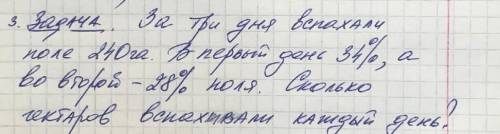 3. Задача. За три дня вспахали
поле 240га. В первый день 34%, а
во второй - 28% поля. Сколько
гектаров вспахивали каждый день?